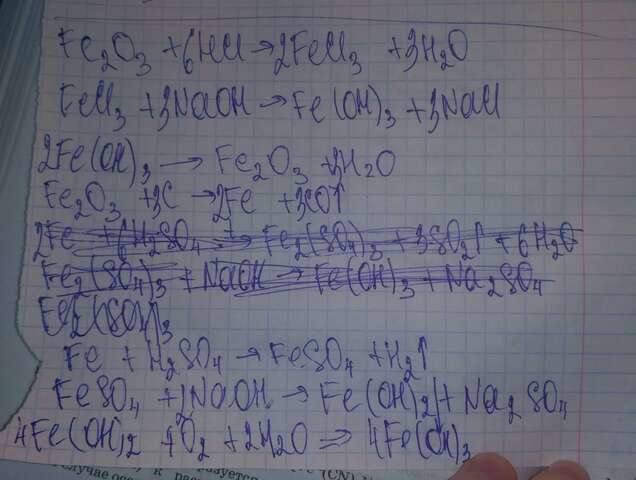 Fe₂O₃ + 6HCl → 2FeCl₃ + 3H₂O
FeCl₃ + 3NaOH → Fe(OH)₃ + 3NaCl
2Fe(OH)₃ → Fe₂O₃ + 3H₂O
Fe₂O₃ + 3C → 2Fe + 3CO↑
2Fe + 6H₂SO₄ →ᵗ Fe₂(SO₄)₃ + 3SO₂↑ + 6H₂O
Fe₂(SO₄)₃ + NaOH → Fe(OH)₃ + Na₂SO₄
Fe₂(SO₄)₃
Fe + H₂SO₄ → FeSO₄ + H₂↑
FeSO₄ + 2NaOH → Fe(OH)₂↓ + Na₂SO₄
4Fe(OH)₂ + O₂ + 2H₂O ⇒ 4Fe(OH)₃
(CN)
случае